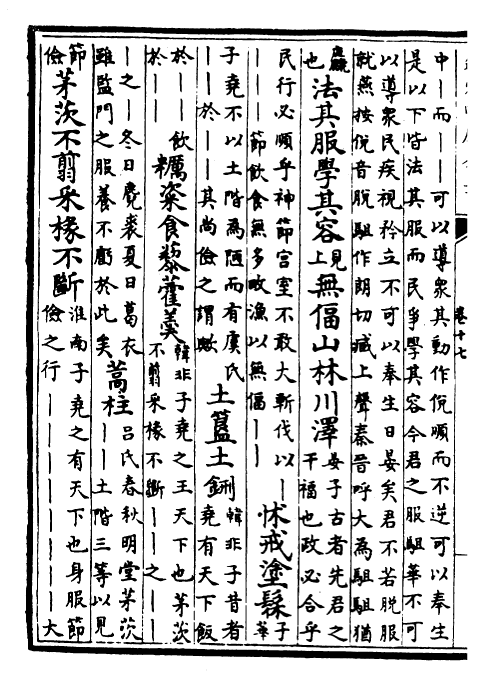 中――而――可以導衆其動作倪順而不逆可以奉生
是以下皆法其服而民爭學其容今君之服駔華不可
以導衆民疾視矜立不可以奉生日晏矣君不若脱服
就燕按倪音脱駔作朗切臧上聲秦晉呼大為駔駔猶
麤也
法其服學其容
見上
無偪山林川澤
晏子古者先君之
干福也政必合乎
民行必順乎神節宫室不敢大斬伐以―
―――節飲食無多畋漁以無偪――
怵戒塗髹
子
華
子堯不以土階為陋而有虞氏
――於――其尚儉之謂歟
土簋土鉶
韓非子昔者
堯有天下飯
於――飲
於――
糲粢食藜藿羹
韓非子堯之王天下也茅茨
不翦采椽不斷――之――
―之―冬日麑裘夏日葛衣
雖監門之服養不虧於此矣
蒿柱
吕氏春秋明堂茅茨
――土階三等以見
節
儉
茅茨不翦采椽不斷
淮南子堯之有天下也身服節
儉之行――――――――大
卷十七